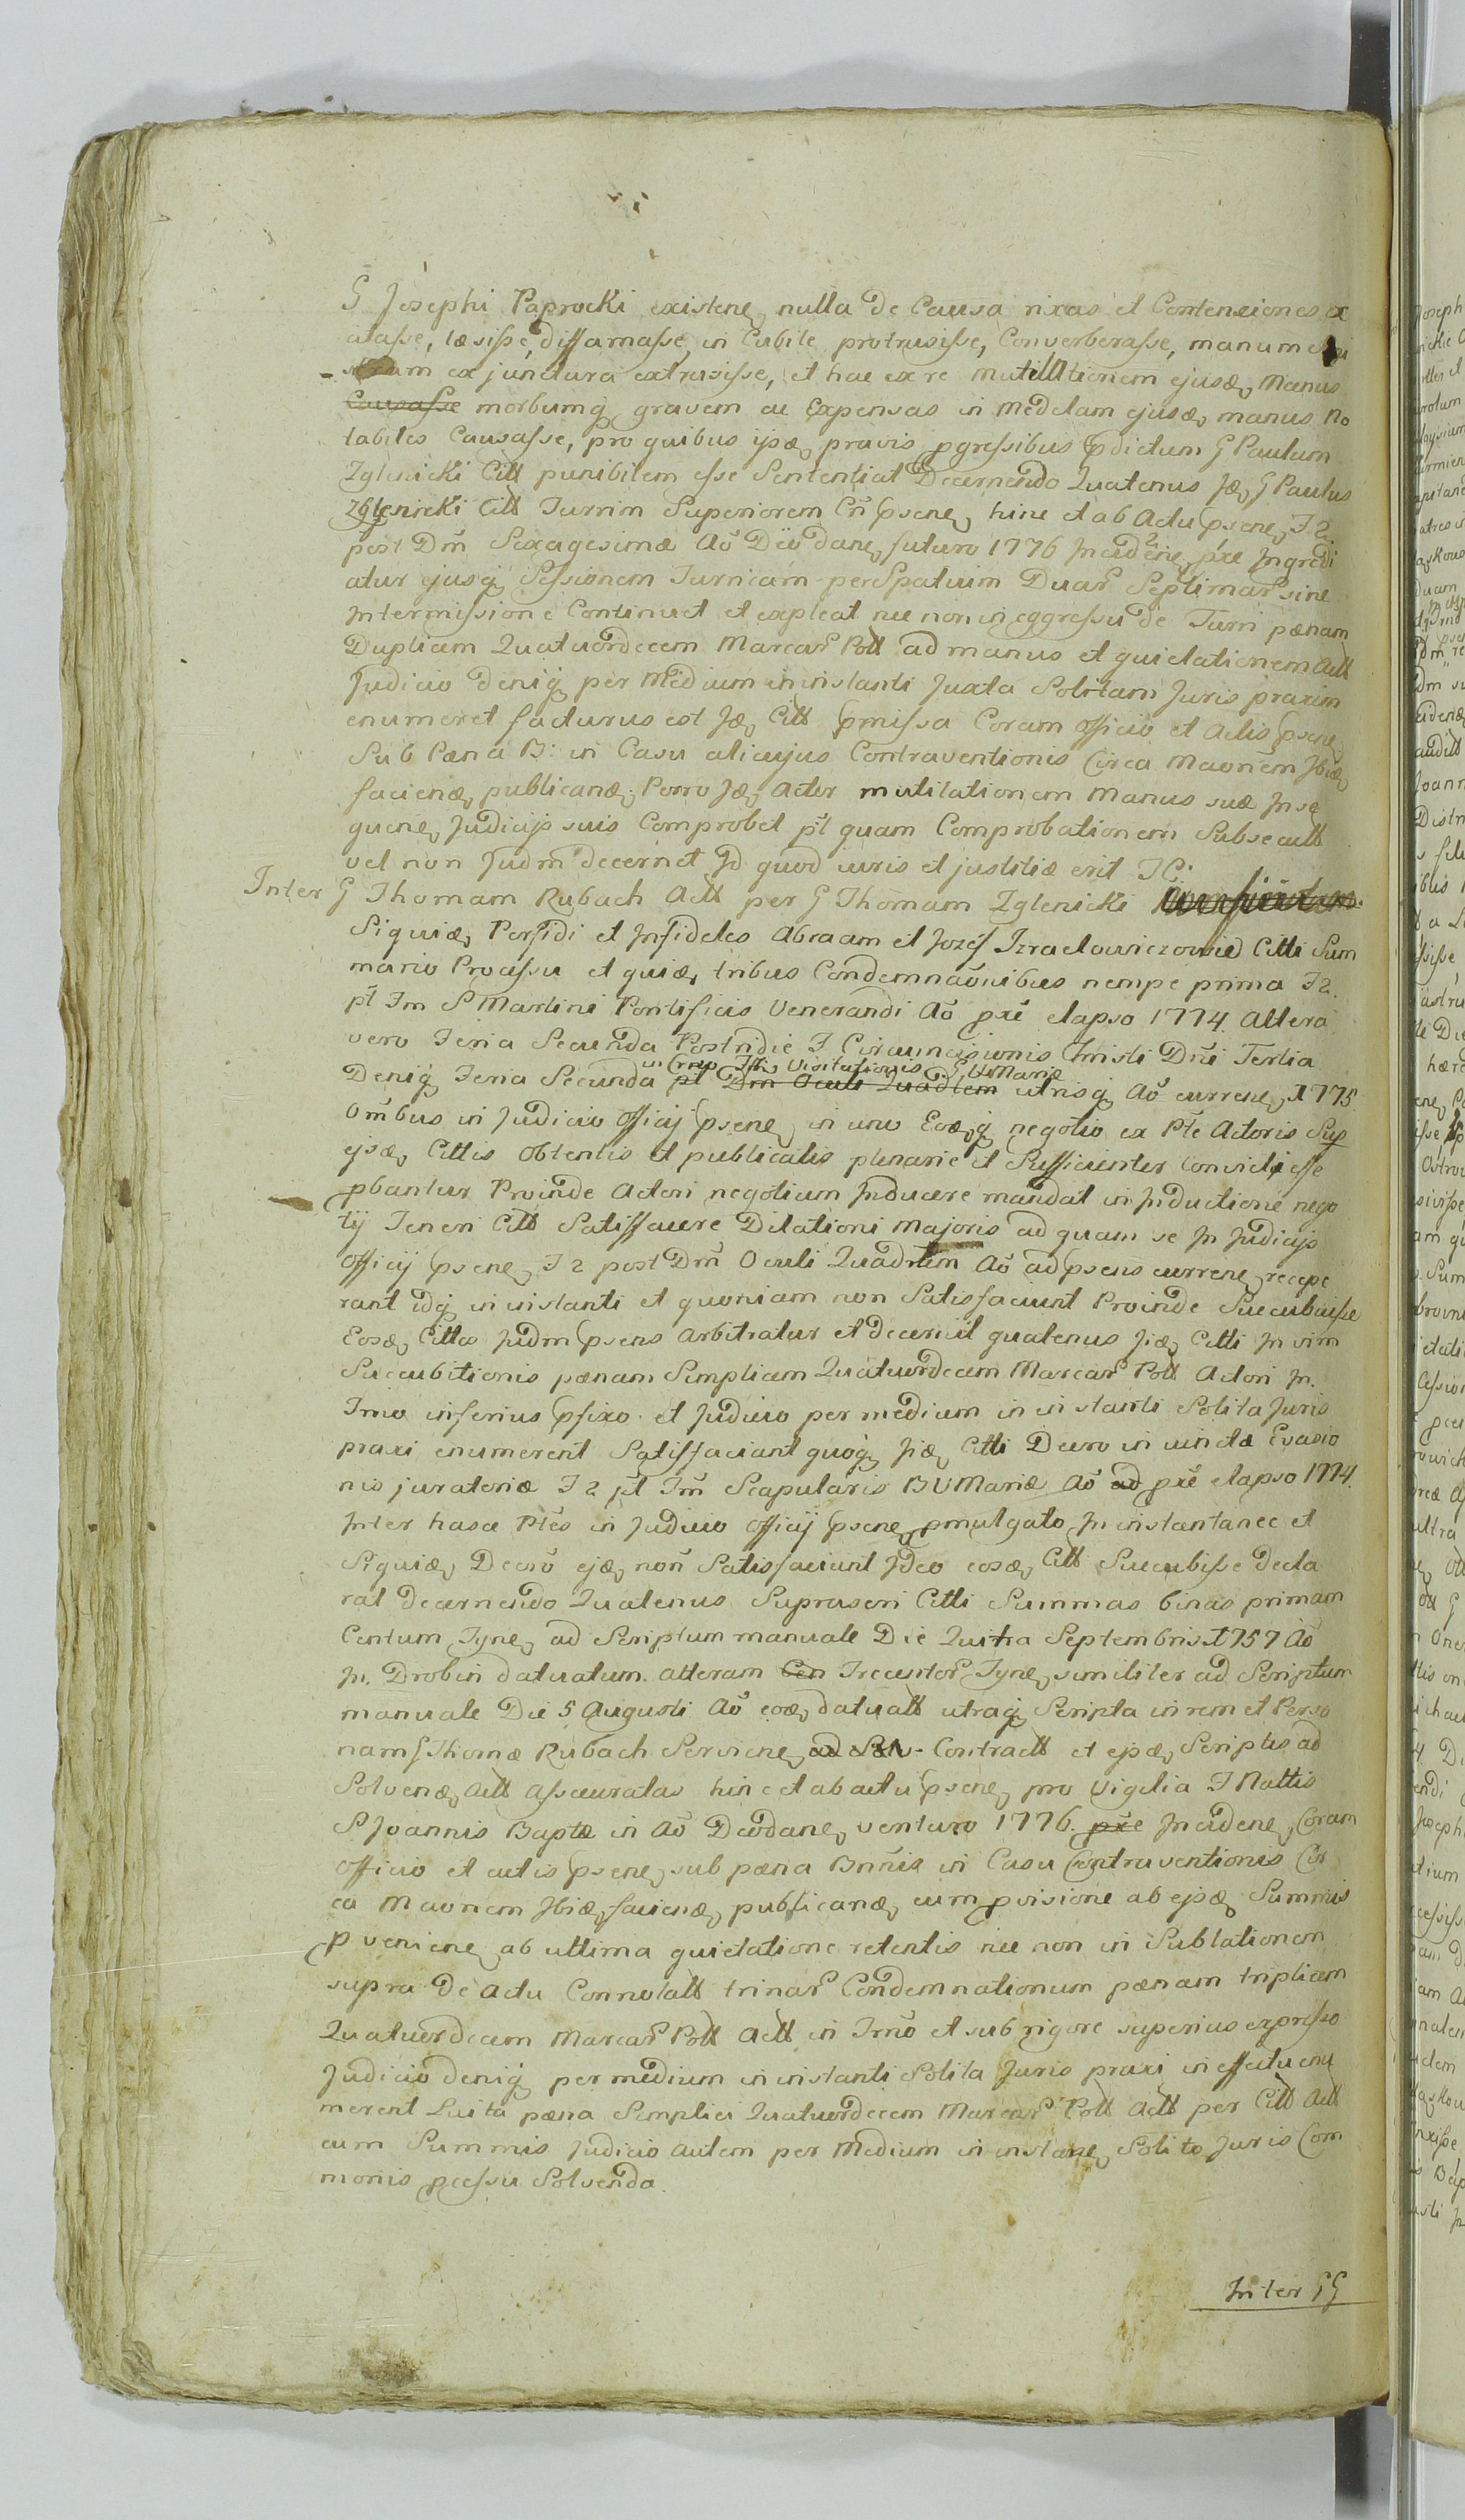 G Josephi Paprocki existene nulla de Causa rixas et Contensiones ex
citasse, læsisse, diffamasse, in Cubile protrusisse, Converberasse, manum
am ex junctura extrusisse, et hac ex re mutillationem ejusd, Manus
Causasse morbumq gravem ac Expensas in Medelam ejusd, manus no
tabiles Causasse, pro quibus ipsæ, pravis pgressibus pdictum G Paulum
Zglenicki Citt punibilem esse Sententiat Decernendo Quatenus Jd, G Paulus
Zglenicki Citt Turrim Superiorem Cñ psene, hinc et ab Actu psene, F 2
post Dm̃ Sexagesimæ Ao Deo dane, futuro 1776 Incidene, pxe Ingredi
atur ejusq Sessionem Turricam per Spatium Duar Septimar sine
Intermissione Continuet et expleat nec non in eggressu de Turri pænam
Duplicem Quatuordecem Marcar Poll ad manus et quietationem Actt
Judicio deniq per Medium in instanti Juxta Solitam Juris praxim
enumeret facturus est Jd, Citt pmissa Coram Officio et Actis psene,
Sub Pæna B: in Casu alicujus Contraventionis Circa Maonem Jbid,
faciend, publicand, Porro Jd, Actor mutilationem Manus suæ Inse
quene, Judicijs suis Comprobet pt quam Comprobationem Subsecutt
vel non Judm decernet Jd quod iuris et justitiæ erit JC:
Inter G Thomam Rubach Actt per G Thomam Zglenicki
Siquid, Perfidi et Infideles Abraam et Jozef Izraelowiczowie Citti Sum
mario Processu et quid, tribus Condemnaonibus nempe prima F 2.
pt Fm S Martini Pontificis Venerandi Ao pxe elapso 1774. Altera
vero Feria Secunda Postridie F Circumcisionis Christi Dni Tertia
in Crno Fti Visitationis B V Mariæ
Deniq Feria Secunda pt Dm Oculi Quadlem utrisq Ao currene, 1775
Ombus in Judicio Officij psene, in uno Eodq negotio ex Pte Actoris Sup
ejsd, Cittis Obtentis et publicatis plenarie et Sufficienter convicti esse
pbantur Proinde Actori negotium Inducere mandat in Inductione nego
tij Teneri Citt Satisfacere Dilationi Majoris ad quam se In Judicijs
Officij psene, F 2 post Dm Oculi Quadrlem Ao ad psens currene, recepe
rant idq in instanti et quoniam non Satisfaciunt Proinde Succubuisse
Eosd, Cittos Judm psens arbitratur et decernit quatenus Jid, Citti In vim
Succubitionis pænam Simplicem Quatuordecem Marcar Poll Actori In
Tmo inferius pfixo et Judicio per medium in instanti Solita Juris
praxi enumerent Satisfaciant quoq Jid, Citti Decro in vinctæ Evasio
nis juratoriæ F 2 pt Fm Scapularis B V Mariæ Ao ad pxe elapso 1774.
Inter hasce Ptes in Judicio Officij psene, pmulgato In instantanee et
Siquid, Decro ejd, non Satisfaciunt Jdeo eosd, Citt Succubisse decla
rat decernendo Quatenus Suprascri Citti Summas binas primam
Centum Tyne, ad Scriptum manuale Die Quitra Septembris 1757 Ao
In Drobin datuatum alteram Cen Trecentor Tyne, similiter ad Scriptum
manuale Die 5 Augusti Ao eod, datuatt utraq Scripta in rem et Perso
nam G Thomæ Rubach Serviene, ad Sol- Contractt et ejsd, Scriptis ad
Solvend, Actt assecuratas hinc et ab actu psene, pro Vigilia F Nattis
S Joannis Baptæ in Ao Deodane, venturo 1776. pxe Incidene, Coram
Officio et actis psene, sub pæna Bnnis in Casu Contraventionis Cir
ca Maonem Jbid, faciend, publicand, cum pvisione ab ejsd, Summis
p veniene, ab ultima quietatione retentis nec non in Sublationem
supra de Actu Connotatt trinar Condemnationum pænam triplicem
Quatuordecem Marcar Poll Actt in Tmo et sub rigore superius expresso
Judicio deniq per medium in instanti Solita Juris praxi in effectu enu
merent Luita pæna Simplici Quatuordecem Marcar Poll Actt per Citt Actt
cum Summis Judicio autem per Medium in instane, Solito Juris Com
monis pcessu Solvenda.
Inter GG